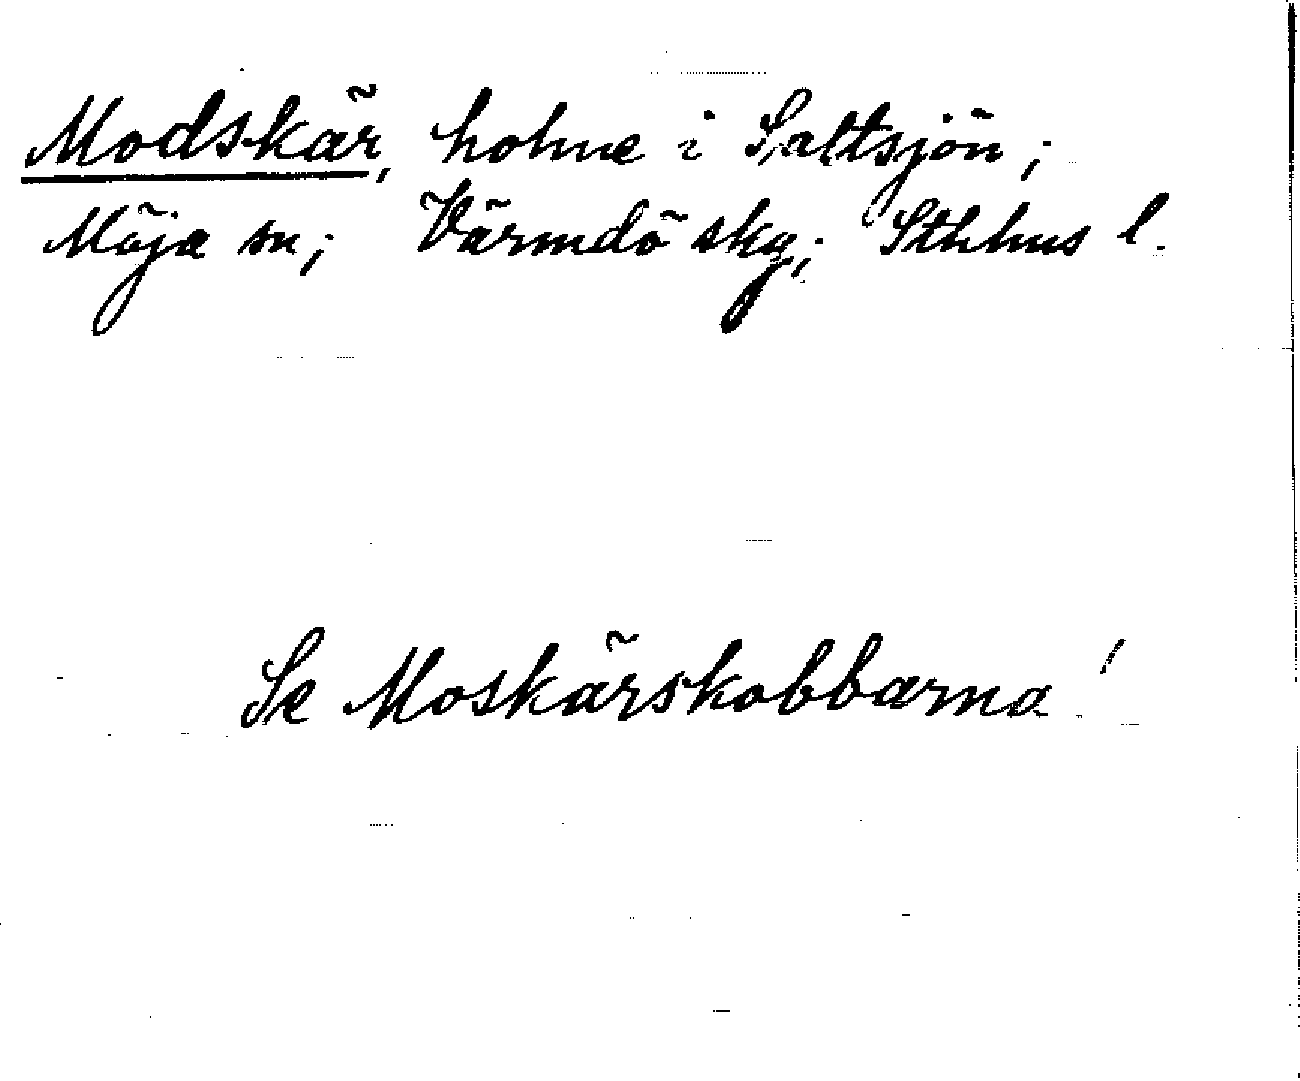 Modskär, holme i Saltsjön;
Möja sn; Värmdö skg; Sthlms l.
Se Moskärskobbarna!